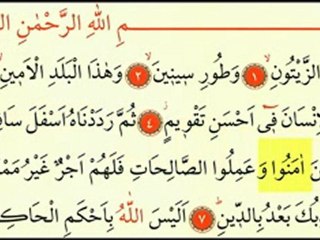 مِ اللّٰهِ الرَّحْمٰنِ ال
الزَّيْتُونِۙ ﴿١﴾ وَطُورِ سٖينٖينَۙ ﴿٢﴾ وَهٰذَا الْبَلَدِ الْاَمٖينِۙ
اِنْسَانَ فٖٓي اَحْسَنِ تَقْوٖيمٍۘ ﴿٤﴾ ثُمَّ رَدَدْنَاهُ اَسْفَلَ سَافِ
نَ اٰمَنُوا وَعَمِلُوا الصَّالِحَاتِ فَلَهُمْ اَجْرٌ غَيْرُ مَمْ
بُكَ بَعْدُ بِالدّٖينِۜ ﴿٧﴾ اَلَيْسَ اللّٰهُ بِاَحْكَمِ الْحَاكِ